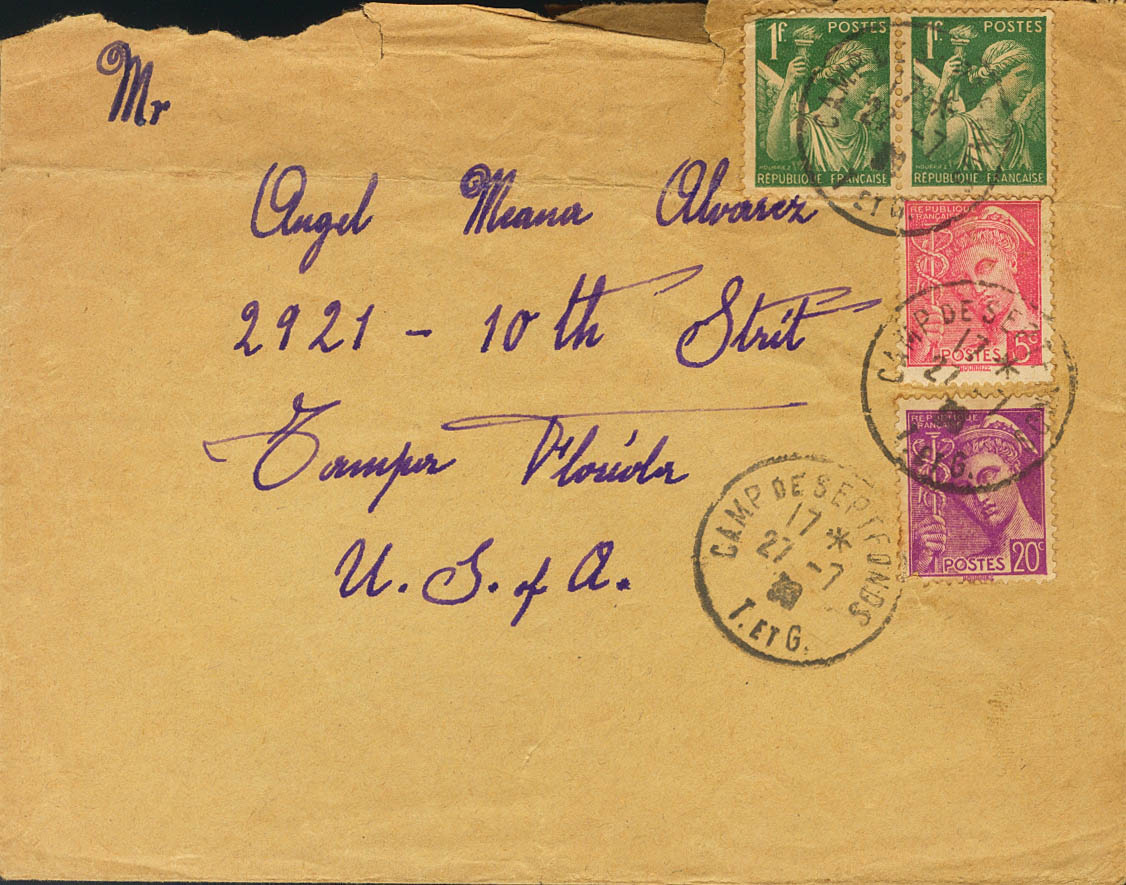 Mr
Angel Meana Alvarez
2921 - 10 th Strit
Tampa Florida
U. S. of A.
1F POSTES
RÉPUBLIQUE FRANÇAISE
1F POSTES
RÉPUBLIQUE FRANÇAISE
CAMP
ET G.
RÉPUBLIQUE FRANÇAISE
POSTES 5c
CAMP DE SE
17 *
27 -7
ET G.
RÉPUBLIQUE FRANÇAISE
POSTES 20c
CAMP DE SEPTFONDS
17 *
27 -7
T. ET G.